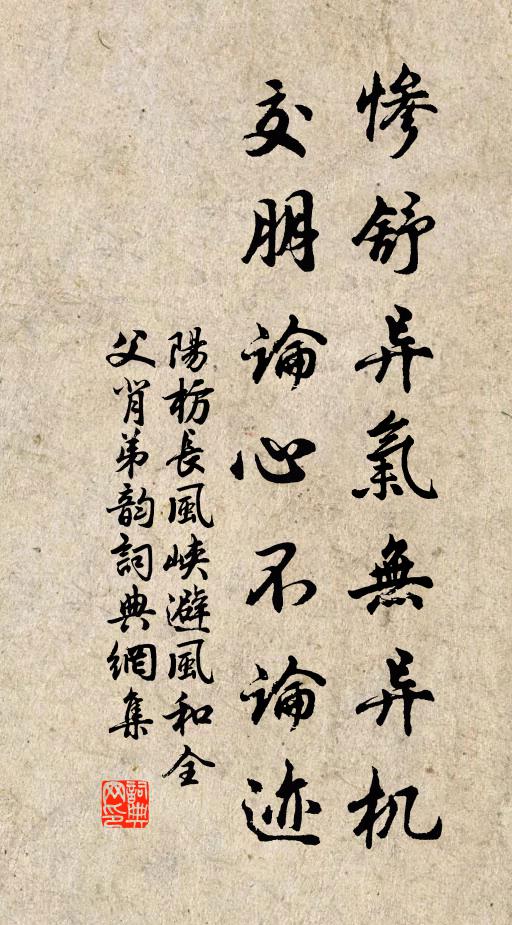 惨舒异氣無异机
交朋論心不論迹
陽枋長風峽避風和全
父肖弟韵詞典網集
詞典网印